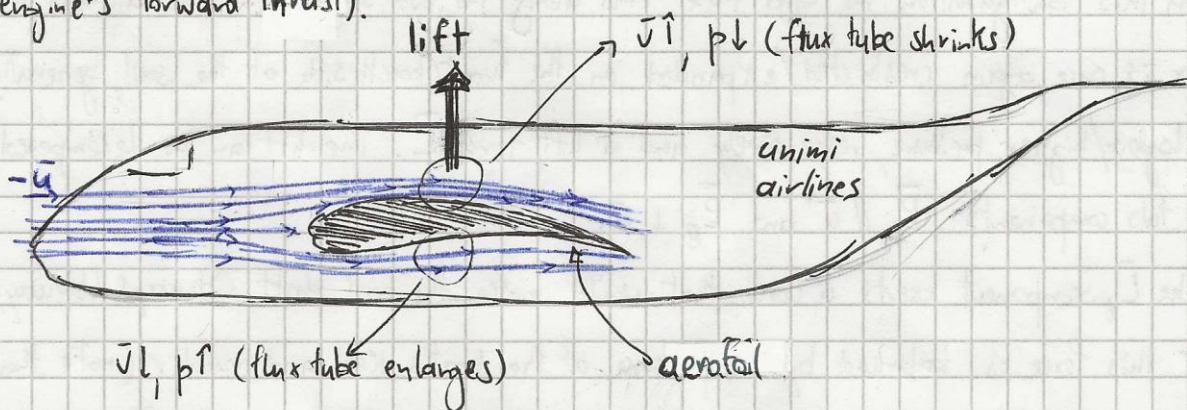 engine's forward thrust).
lift
v̄↑, p↓ (flux tube shrinks)
unimi
airlines
-u
v̄↓, p↑ (flux tube enlarges)
aerofoil